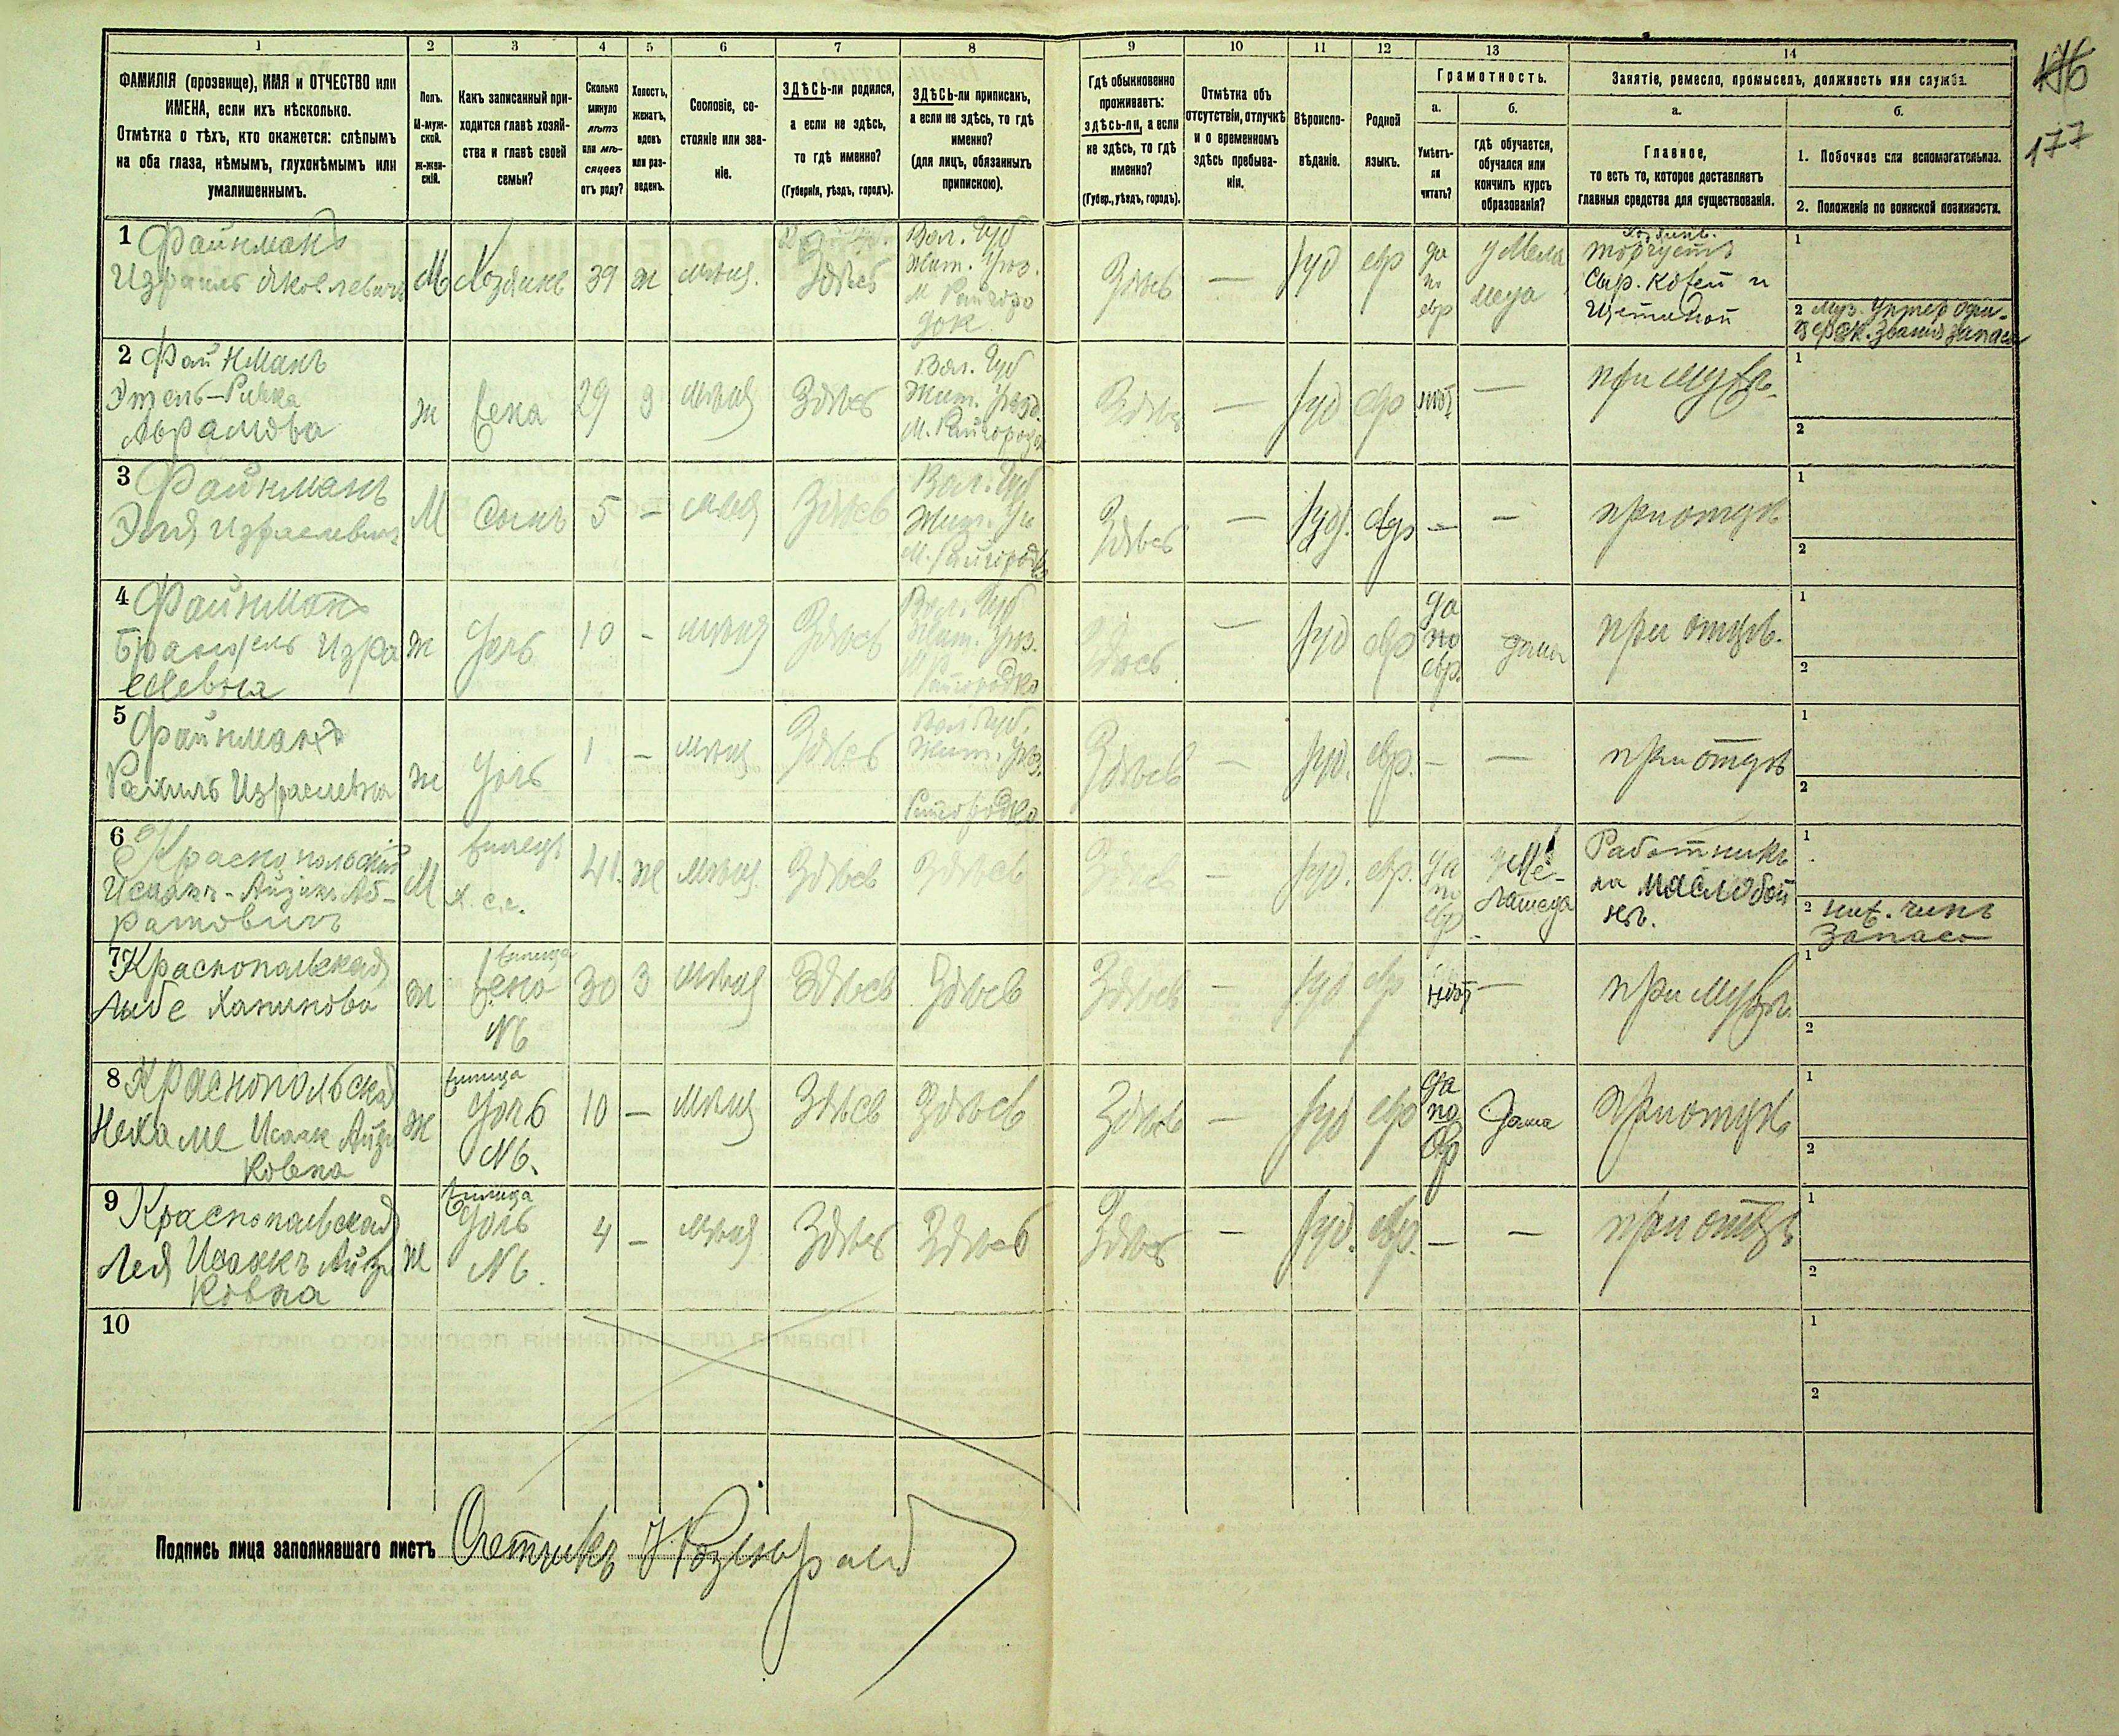 1 2 3 4 5 6 7 8 9 10 11 12 13 14
ФАМИЛІЯ (прозвище), ИМЯ и ОТЧЕСТВО или
ИМЕНА, если ихъ нѣсколько.
Отмѣтка о тѣхъ, кто окажется: слѣпымъ
на оба глаза, нѣмымъ, глухонѣмымъ или
умалишеннымъ.
Полъ.
М-муж-
ской.
ж-жен-
скій.
Какъ записанный при-
ходится главѣ хозяй-
ства и главѣ своей
семьи?
Сколько
минуло
лѣтъ
или мѣ-
сяцевъ
отъ роду?
Холостъ,
женатъ,
вдовъ
или раз-
веденъ.
Сословіе, со-
стояніе или зва-
ніе.
ЗДѢСЬ-ли родился,
а если не здѣсь,
то гдѣ именно?
(Губернія, уѣздъ, городъ).
ЗДѢСЬ-ли приписанъ,
а если не здѣсь, то гдѣ
именно?
(для лицъ, обязанныхъ
припискою).
Гдѣ обыкновенно
проживаетъ:
здѣсь-ли, а если
не здѣсь, то гдѣ
именно?
(Губер., уѣздъ, городъ).
Отмѣтка объ
отсутствіи, отлучкѣ
и о временномъ
здѣсь пребыва-
ніи.
Вѣроиспо-
вѣданіе.
Родной
языкъ.
Грамотность.
а.
Умѣетъ-
ли
читать?
б.
гдѣ обучается,
обучался или
кончилъ курсъ
образованія?
Занятіе, ремесло, промыселъ, должность или служба.
а.
Главное,
то есть то, которое доставляетъ
главныя средства для существованія.
б.
1. Побочное или вспомогательное.
2. Положеніе по воинской повинности.
177
1 Файнманъ
Израиль Яковлевичъ
М Хозяинъ 39 ж мѣщ. Здѣсь
Вол. Губ
Жит. Уѣз.
М Райгоро
док
Здѣсь — Іуд евр
да
по
евр
у Мела
меда
Хозяинъ.
торгуетъ
Сыр. Кожей и
Щетиной
1
2 Муз. Унтер Офи-
запаса
2 Файнманъ
Этель-Ривка
Абрамова
ж жена 29 з мѣщ Здѣсь
Вол. Губ
Жит. Уѣзд.
М. Райгородо
Здѣсь — Іуд евр нѣт — при мужѣ
1
2
3 Файнманъ
Эля Израилевичъ
М Сынъ 5 — мѣщ Здѣсь
Вол. Губ
Жит. Уѣ
М. Райгородк
Здѣсь — Іуд. евр — — при отцѣ
1
2
4 Файнманъ
Изра
илевна
ж дочь 10 — мѣщ Здѣсь
Вол. Губ
Жит. Уѣз.
М Райгородко
Здѣсь — Іуд евр
да
по
евр.
дома
при отцѣ.
1
2
5 Файнманъ
Рахиль Израилевна
ж дочь 1 — мѣщ Здѣсь
Вол Губ.
Жит. Уѣз.
Райгородко
Здѣсь — Іуд. евр. — — при отцѣ
1
2
6 Краснопольскій
Исаакъ-Айзикъ Аб-
рамовичъ
М жилецъ
41. ж мѣщ. Здѣсь Здѣсь Здѣсь — Іуд. евр.
да
по
евр
у Ме-
ламеда
Работникъ
на маслобой
нѣ.
1
2 ниж. чинъ
запаса
7 Краснопольская
Хаимова
ж жилица
жена
№6
30 З мѣщ Здѣсь Здѣсь Здѣсь — Іуд евр нѣт — при мужѣ.
1
2
8 Краснопольская
Нехаме Исаак Айзи
ковна
ж жилица
дочь
№6.
10 — мѣщ Здѣсь Здѣсь Здѣсь — Іуд евр
да
по
евр
дома
при отцѣ
1
2
9 Краснопольская
Лея Исаакъ Айзи
ковна
ж жилица
дочь
№6.
4 — мѣщ Здѣсь Здѣсь Здѣсь — Іуд. евр. — — при отцѣ
1
2
10
1
2
Подпись лица заполнявшаго листъ Счетчикъ